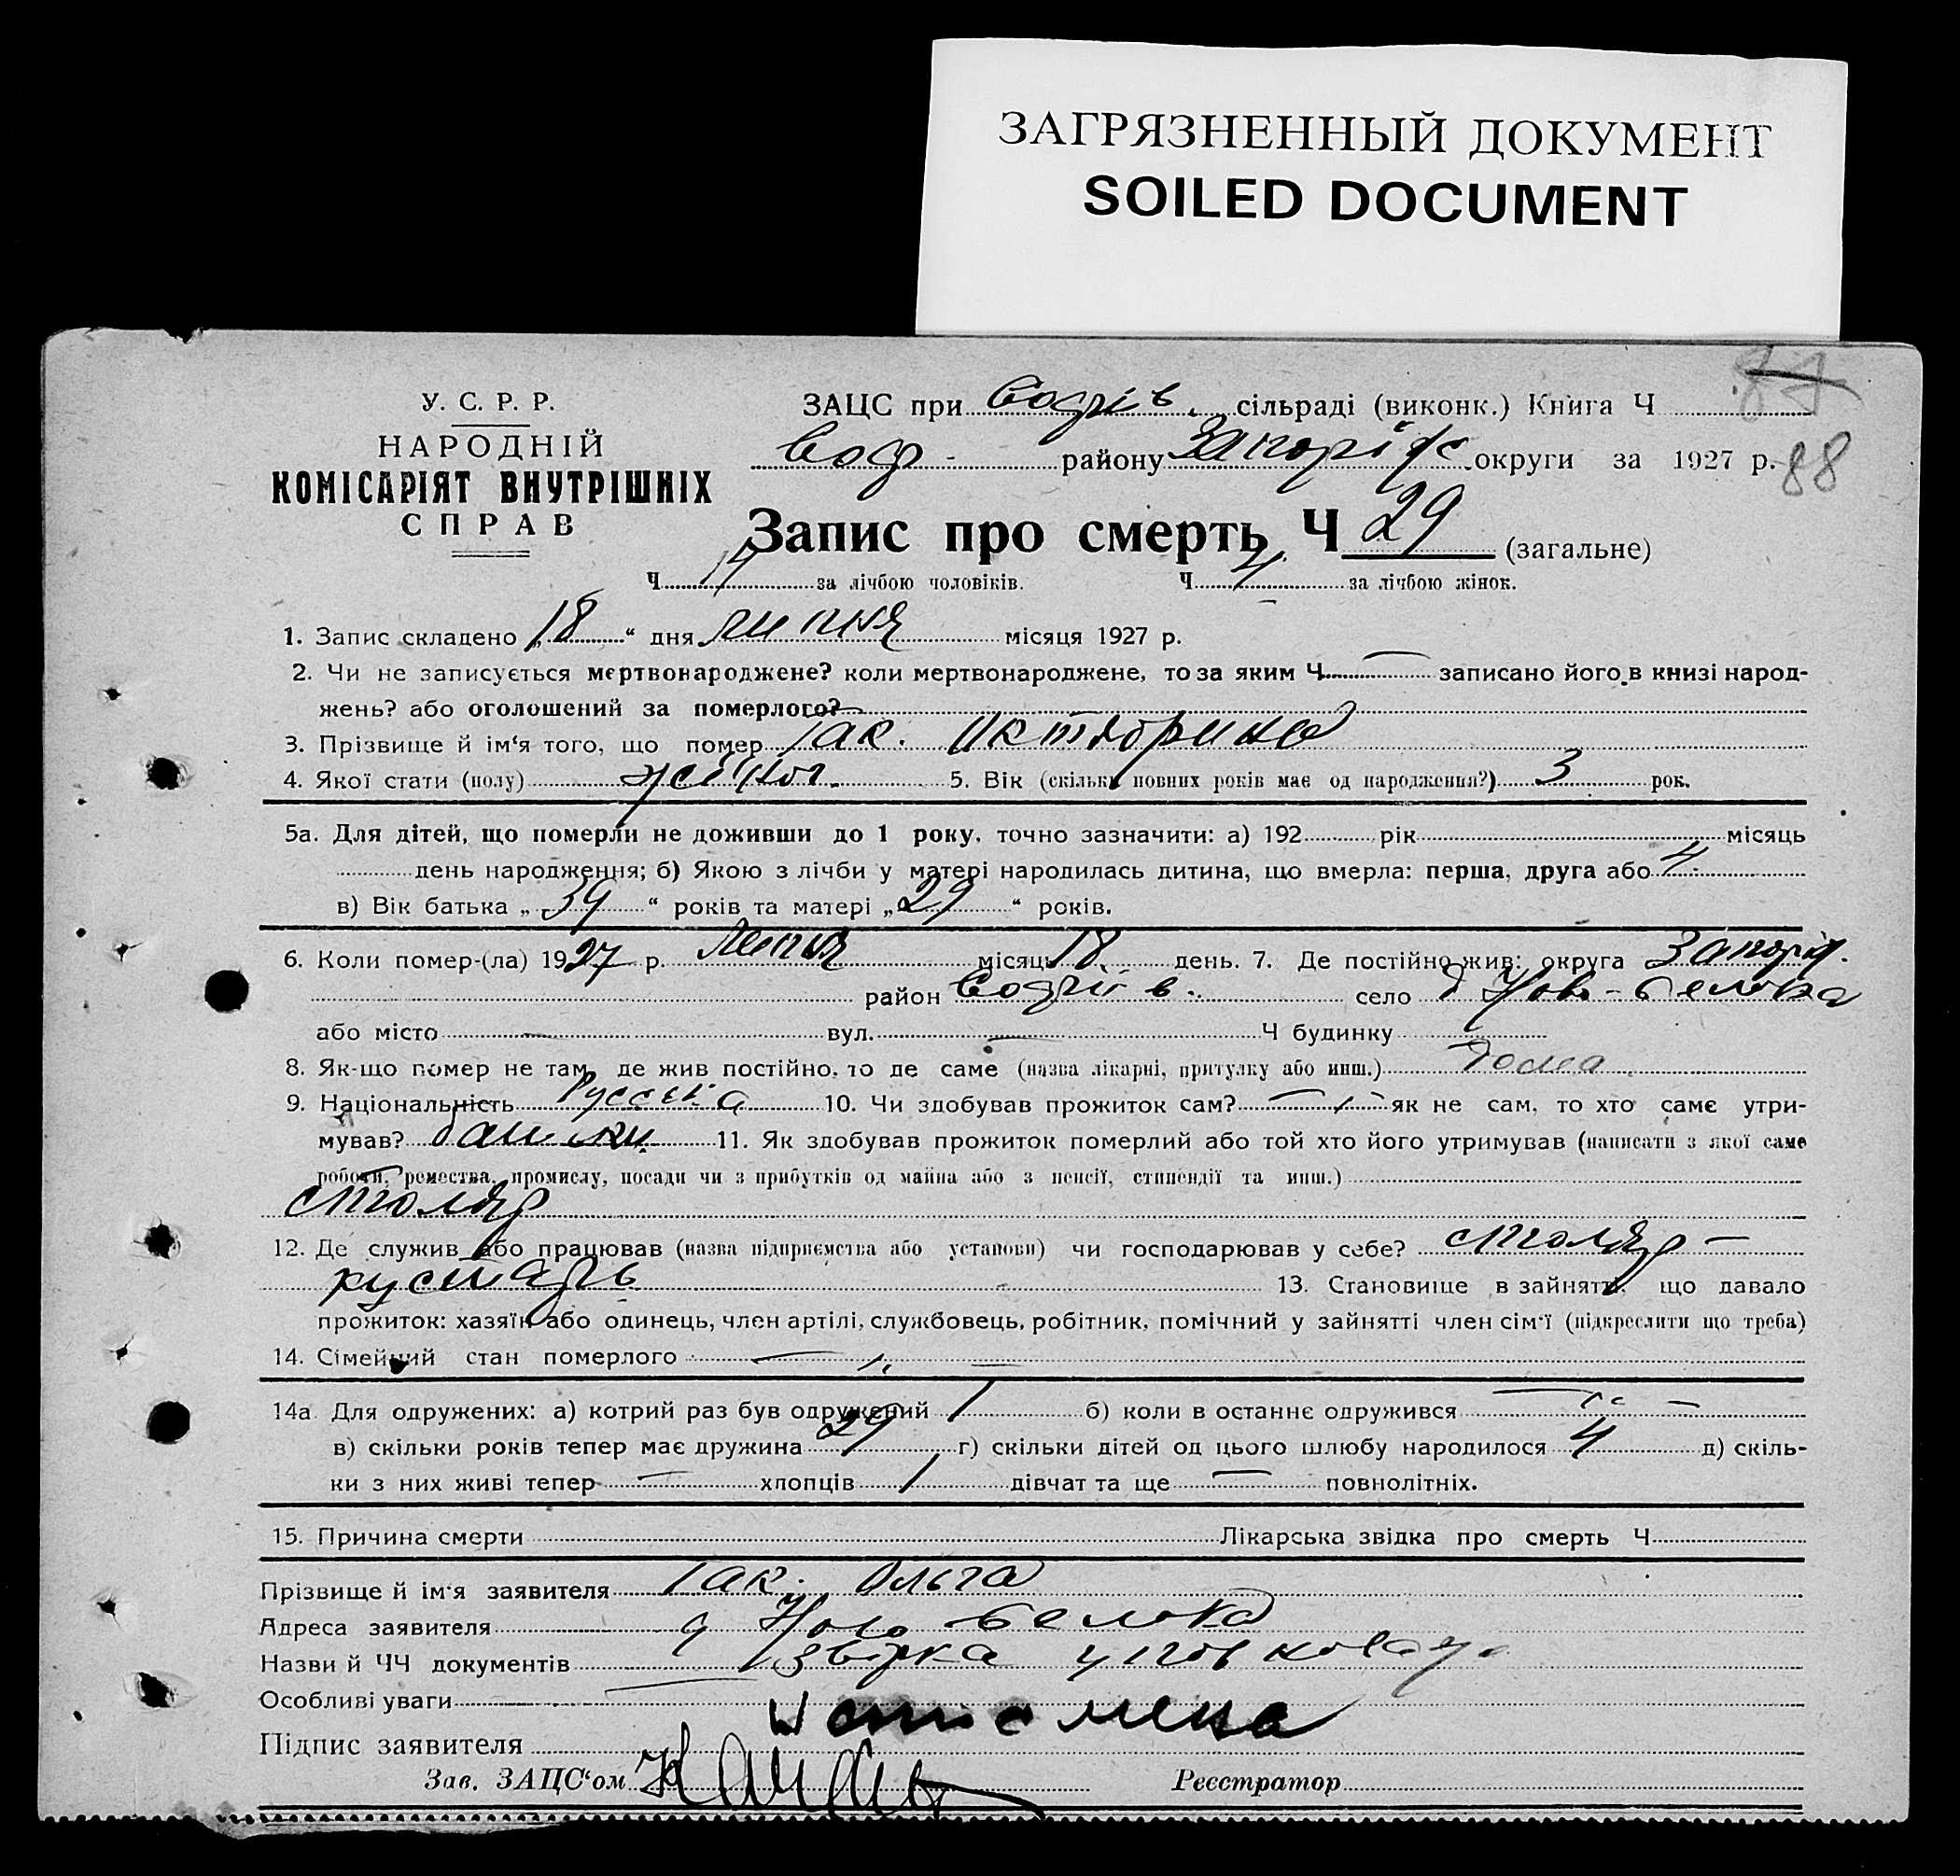 ЗАГРЯЗНЕННЫЙ ДОКУМЕНТ
SOILED DOCUMENT
У. С. Р. Р.
НАРОДНІЙ
КОМІСАРІЯТ ВНУТРІШНІХ
СПРАВ
87
ЗАЦС при Софіїв. сільраді (виконк.) Книга Ч
88
Соф. району Запоріж. округи за 1927 р.
Запис про смерть Ч 29 (загальне)
Ч за лічбою чоловіків. Ч за лічбою жінок.
1. Запис складено „18“ дня липня місяця 1927 р.
2. Чи не записується мертвонароджене? коли мертвонароджене, то за яким Ч — записано його в книзі народ-
жень? або оголошений за померлого? —
3. Прізвище й ім‘я того, що помер Гак. Октябрина
4. Якої стати (полу) жіноч. 5. Вік (скільки повних років має од народження?) 3 рок.
5а. Для дітей, що померли не доживши до 1 року, точно зазначити: а) 192 рік місяць
день народження; б) Якою з лічби у матері народилась дитина, що вмерла: перша, друга або 4.
в) Вік батька „39“ років та матері „29“ років.
6. Коли помер-(ла) 1927 р. Липня місяць 18 день. 7. Де постійно жив: округа Запоріж.
район Софіїв. село
або місто — вул. — Ч будинку —
8. Як-що помер не там, де жив постійно, то де саме (назва лікарні, притулку або инш.) дома
9. Національність Русська 10. Чи здобував прожиток сам? — „ — як не сам, то хто саме утри-
мував? батьки 11. Як здобував прожиток померлий або той хто його утримував (написати з якої саме
роботи, ремества, промислу, посади чи з прибутків од майна або з пенсії, стипендії та инш.)
столяр
12. Де служив або працював (назва підприємства або установи) чи господарював у себе? столяр —
кустарь 13. Становище в зайнятті, що давало
прожиток: хазяїн або одинець, член артілі, службовець, робітник, помічний у зайнятті член сім‘ї (підкреслити що треба)
14. Сімейний стан померлого — „ —
14а Для одружених: а) котрий раз був одружений 1 б) коли в останнє одружився — „ —
в) скільки років тепер має дружина 29 г) скільки дітей од цього шлюбу народилося 4 д) скіль-
ки з них живі тепер — хлопців 1 дівчат та ще — повнолітніх.
15. Причина смерти Лікарська звідка про смерть Ч
Прізвище й ім‘я заявителя Гак. Ольга
Адреса заявителя
Назви й ЧЧ документів
Особливі уваги
Підпис заявителя
Зав. ЗАЦС‘ом Реєстратор